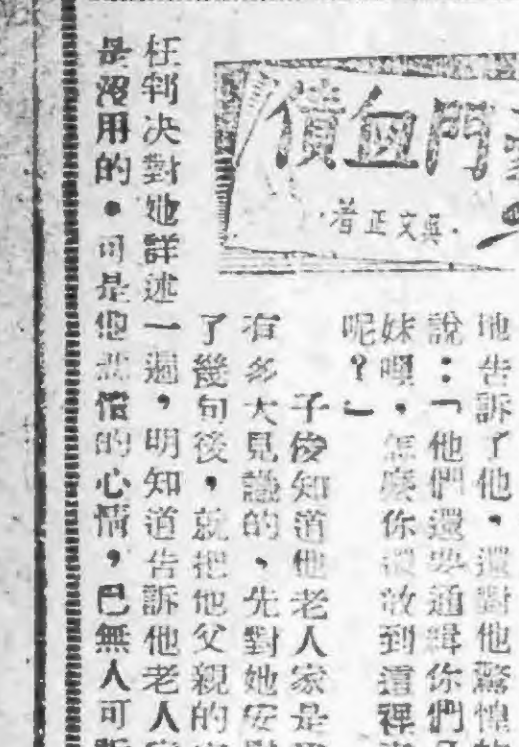 門血債
吳文正著
地告訴了他，還對他驚惶
說：「他們還要通緝你們
妹哩，怎麼你還敢到這裡
呢？」
子俊知道他老人家是
有多大見識的，先對她安
了幾句後，就把他父親的
枉判決對她詳述一遍，明知道告訴他老人
是沒用的。可是他悲憤的心情，已無人可